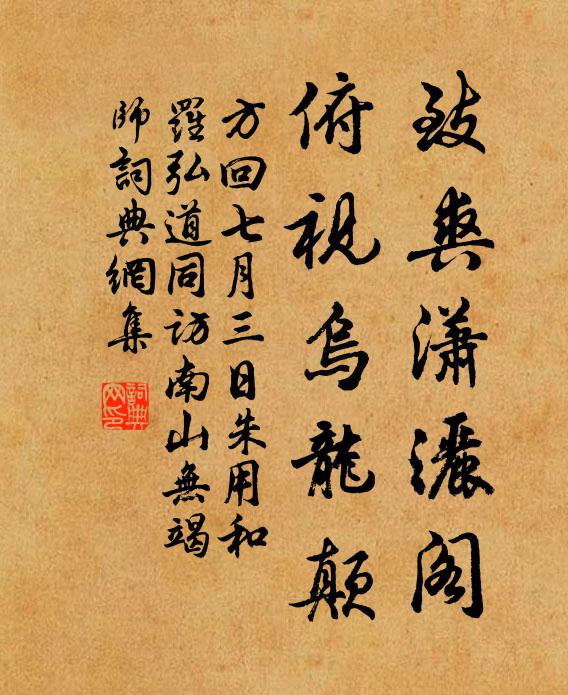 致爽瀟灑閣
俯視烏龍顛
方回七月三日朱用和
羅弘道同訪南山無竭
師詞典網集
詞典網印